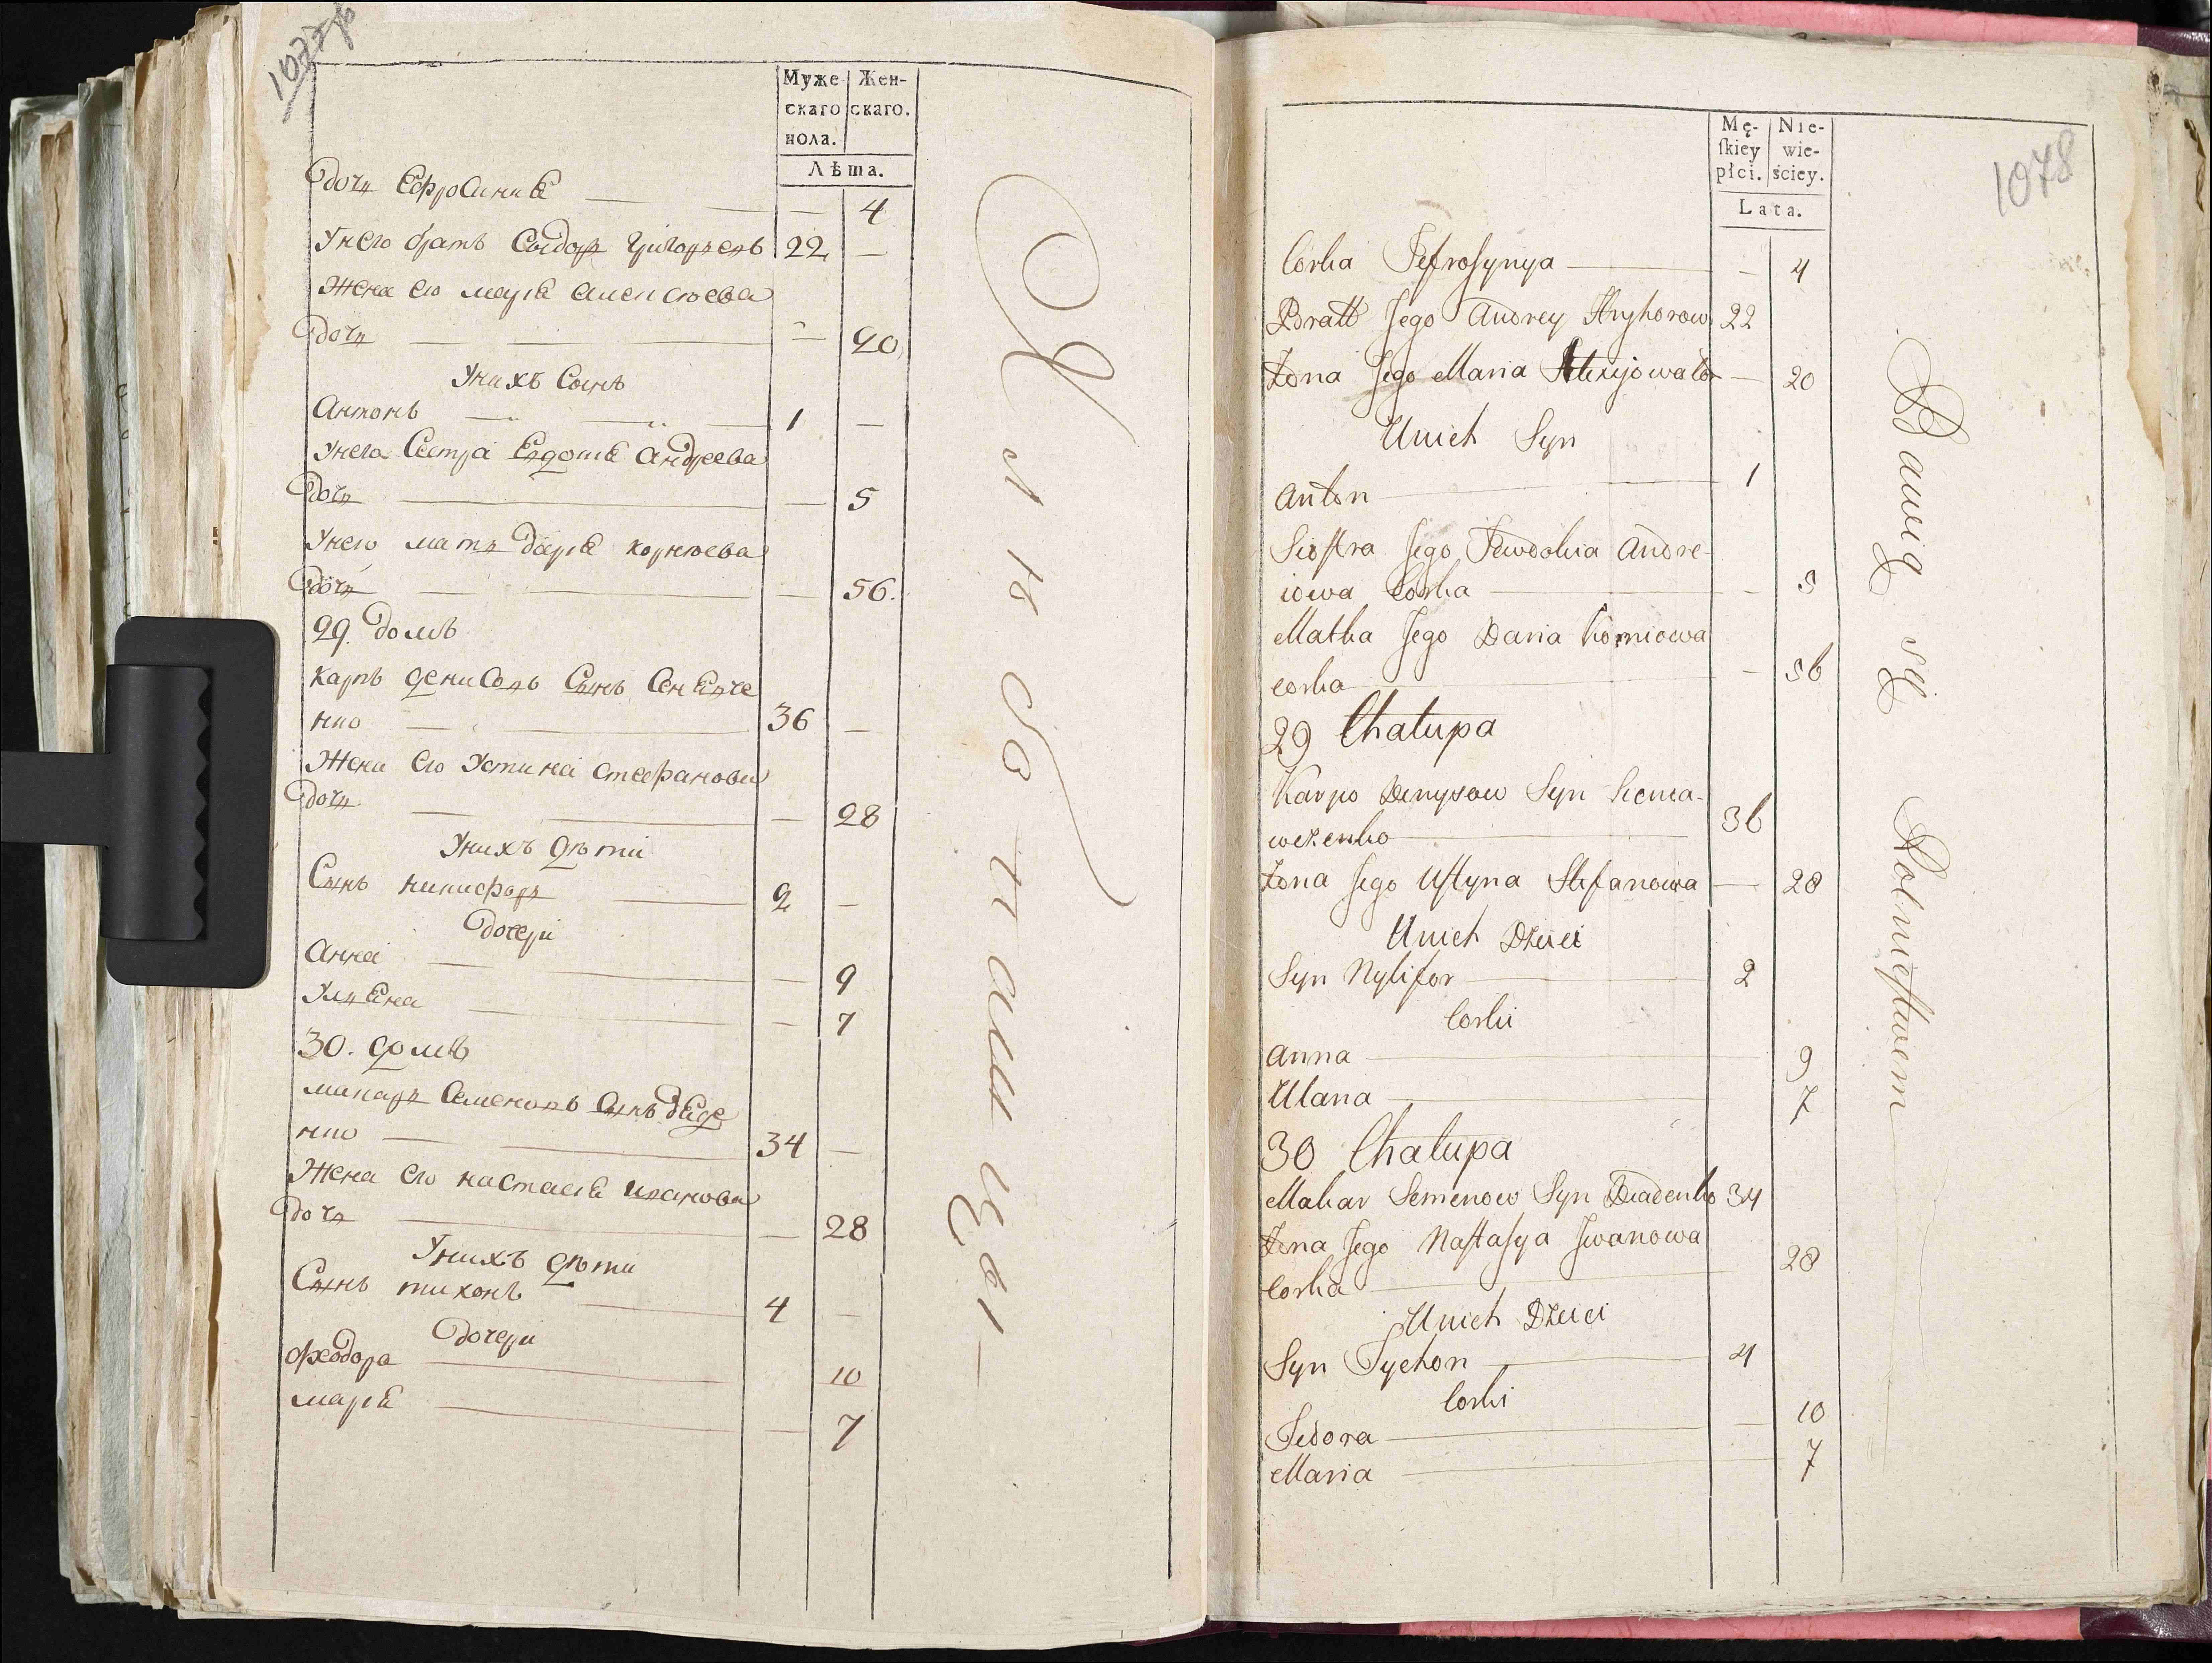 1077об
Муже
скаго
пола.
Жен-
скаго.
Лѣта.
Дочь Ефросиниѣ — — — 4
Унего братъ Сыдоръ Григорьевъ 22 —
Жена его мариѣ алексѣева
Дочь — — — — 20
Унихъ Сынъ
Антонъ — — — 1 —
Унего Сестра Евдокиѣ Андреева
Дочь — — 5
Унего мать дариѣ корнѣева
дочь — — — 56.
29. домъ
карпъ денисовъ Сынъ
нко — — 36 —
Жена его Устина стефанова
дочь — — — 28
Унихъ дѣти
Сынъ никифоръ — 2 —
дочери
Анна — — — 9
Ульѣна — — 7
30. домъ
макаръ Семеновъ Сынъ дѣде
нко — — 34 —
Жена его настасиѣ иванова
дочь — — 28
Унихъ дѣти
Сынъ тихонъ — 4 —
дочери
феодора — 10
мариѣ — — 7
Хлѣбопашцы —
1078
Mę-
ſkiey
płci.
Nie-
wie-
ściey.
Lata.
Corka Jefrosynya — — 4
Bratt Jego Andrey Hryhorow 22
Żona Jego Maria — 20
Unich Syn
Anton — — 1
Siostra Jego Jewdokia Andre-
iowa Corka — — 5
Matka Jego Daria Korniowa
corka — — 56
29 Chałupa
Karpo Denysow Syn
wczenko — 36
Żona Jego Ustyna Stefanowa — 28
Unich Dzieci
Syn Nykifor — 2
Corki
Anna — 9
Ulana — 7
30 Chałupa
Makar Semenow Syn Diadenko 34
Żona Jego Nastasya Jwanowa
corka — 28
Unich Dzieci
Syn Tychon — 4
Corki
Fedora — — 10
Maria — 7
Bawią się Rolnictwem